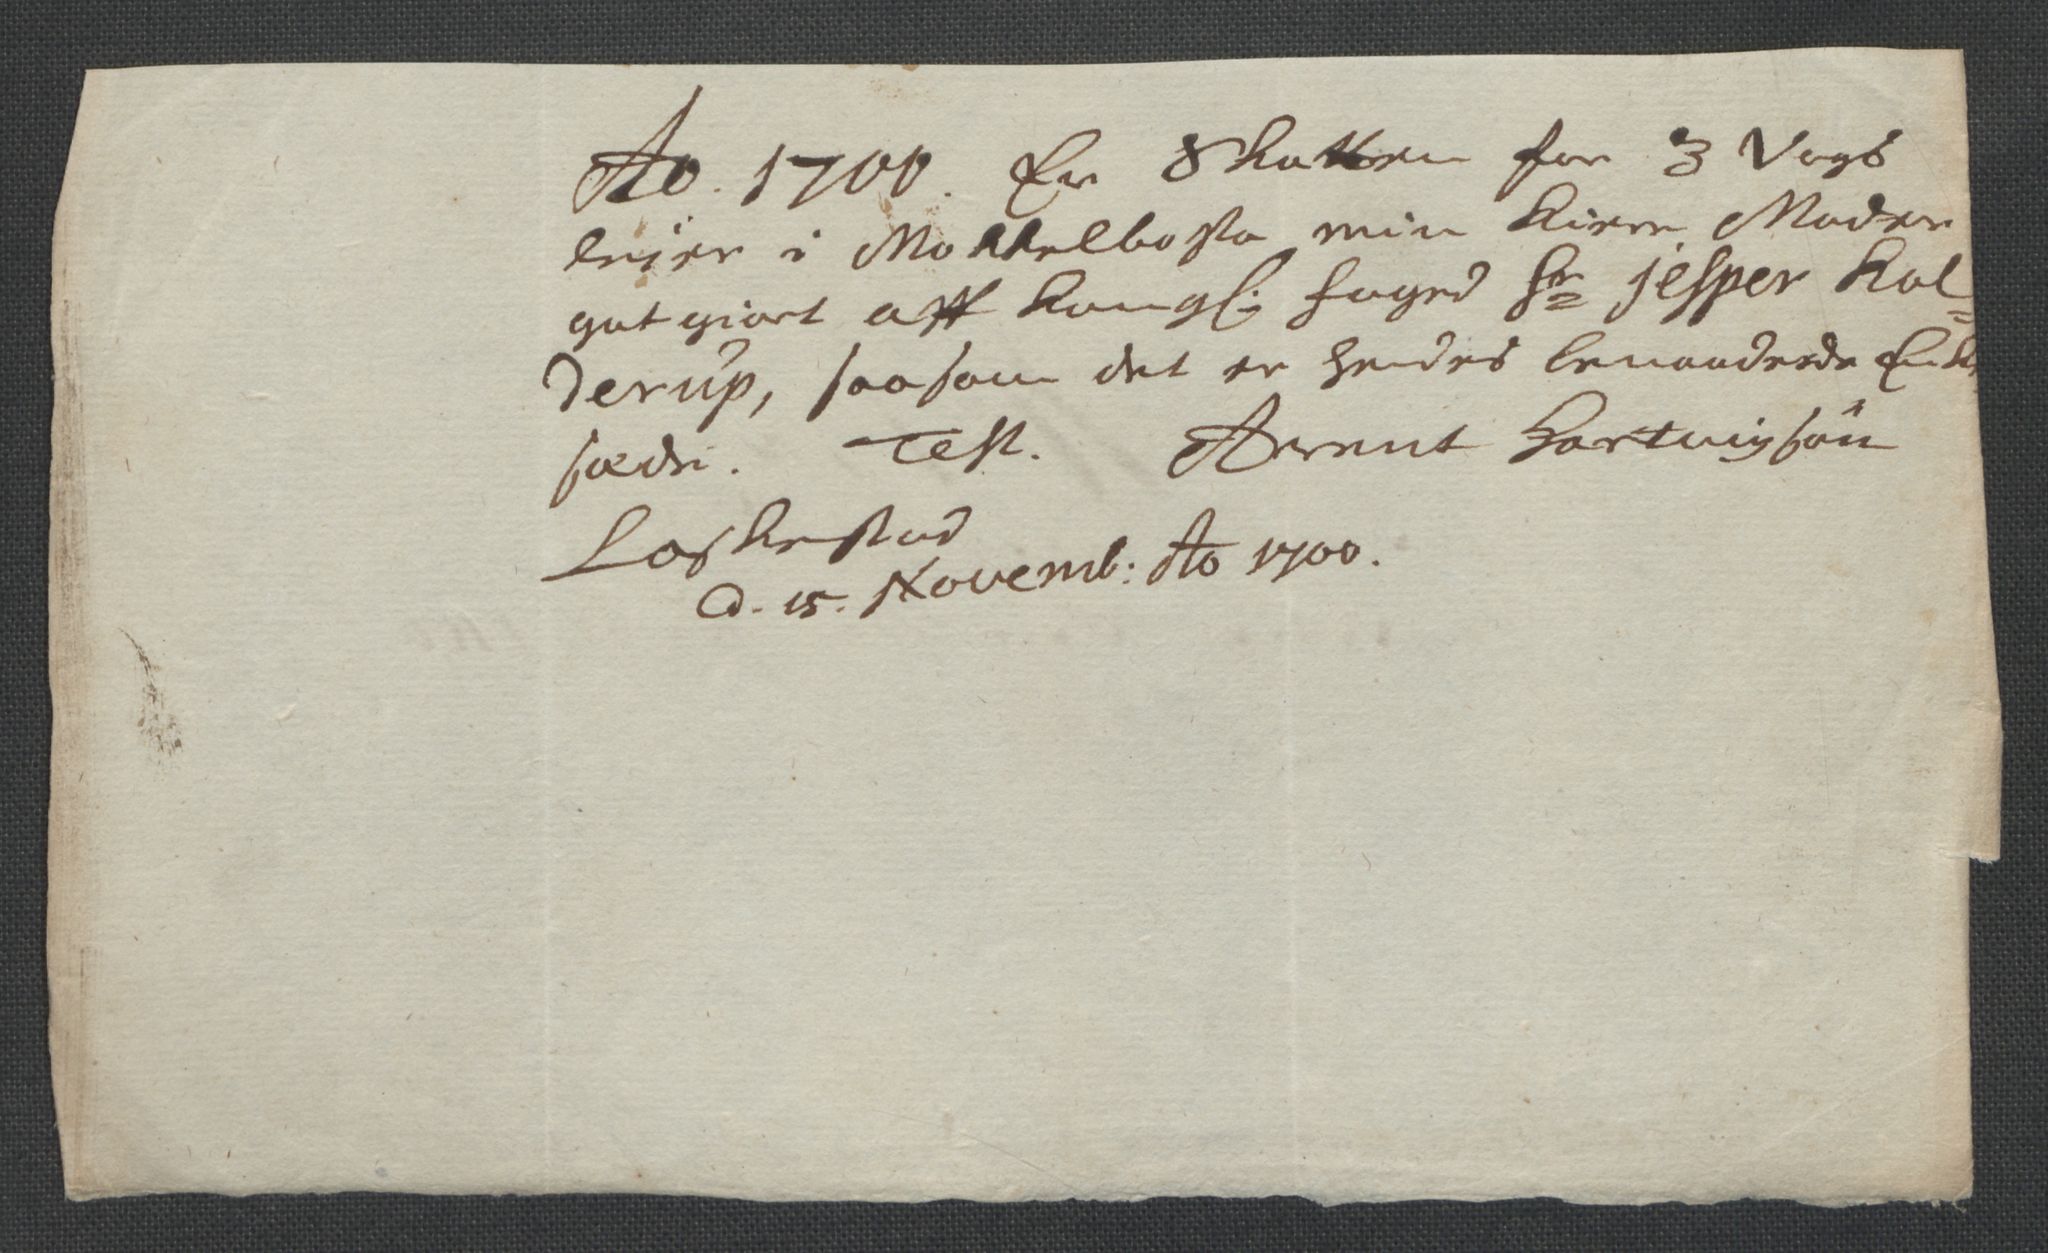 Ao. 1700. Er Skatten for 3 Vogs
leÿer i Mokkelbosta min kiere Moder
gotgiort aff kongl: foged Hr Jesper Kol=
derup, saasom det er hendes benaadede Enke
sæde. Test. Arent Hartwigsøn
Loskestad
d. 15. Novemb: Ao 1700.